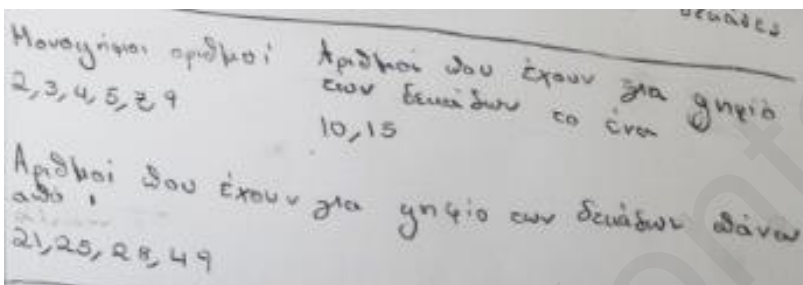 δεκάδες
Μονοψήφιοι αριθμοί
2, 3, 4, 5, 7, 9
Αριθμοί που έχουν για ψηφίο
των δεκάδων το ένα
10, 15
Αριθμοί που έχουν για ψηφίο των δεκάδων πάνω
από 1
21, 25, 28, 49